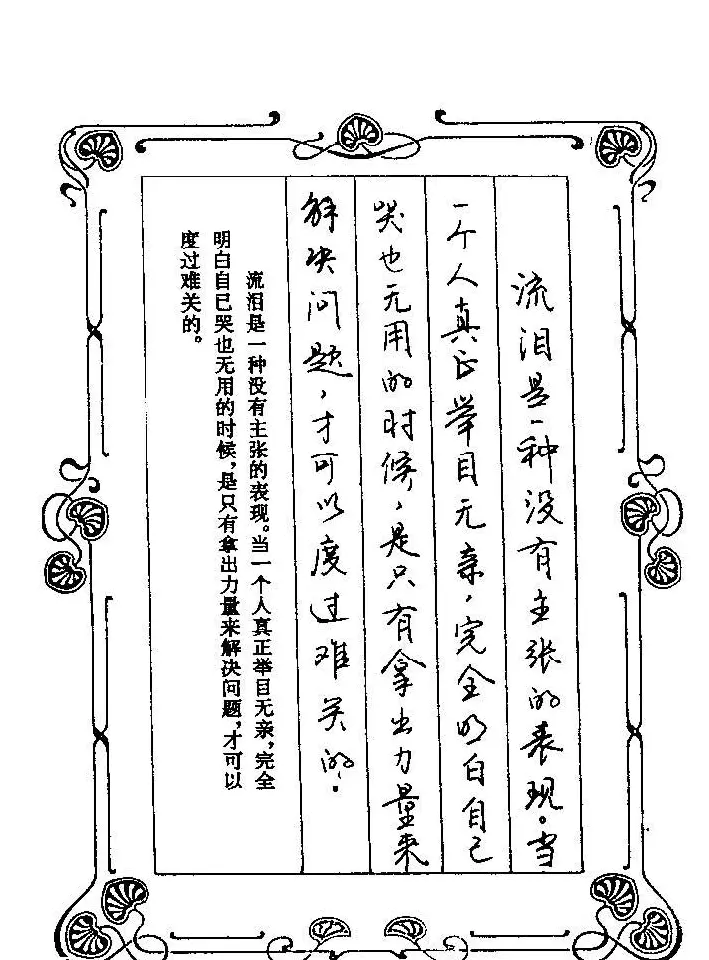 流泪是一种没有主张的表现。当
一个人真正举目无亲，完全明白自己
哭也无用的时候，是只有拿出力量来
解决问题，才可以度过难关的。
流泪是一种没有主张的表现。当一个人真正举目无亲，完全
明白自已哭也无用的时候，是只有拿出力量来解决问题，才可以
度过难关的。